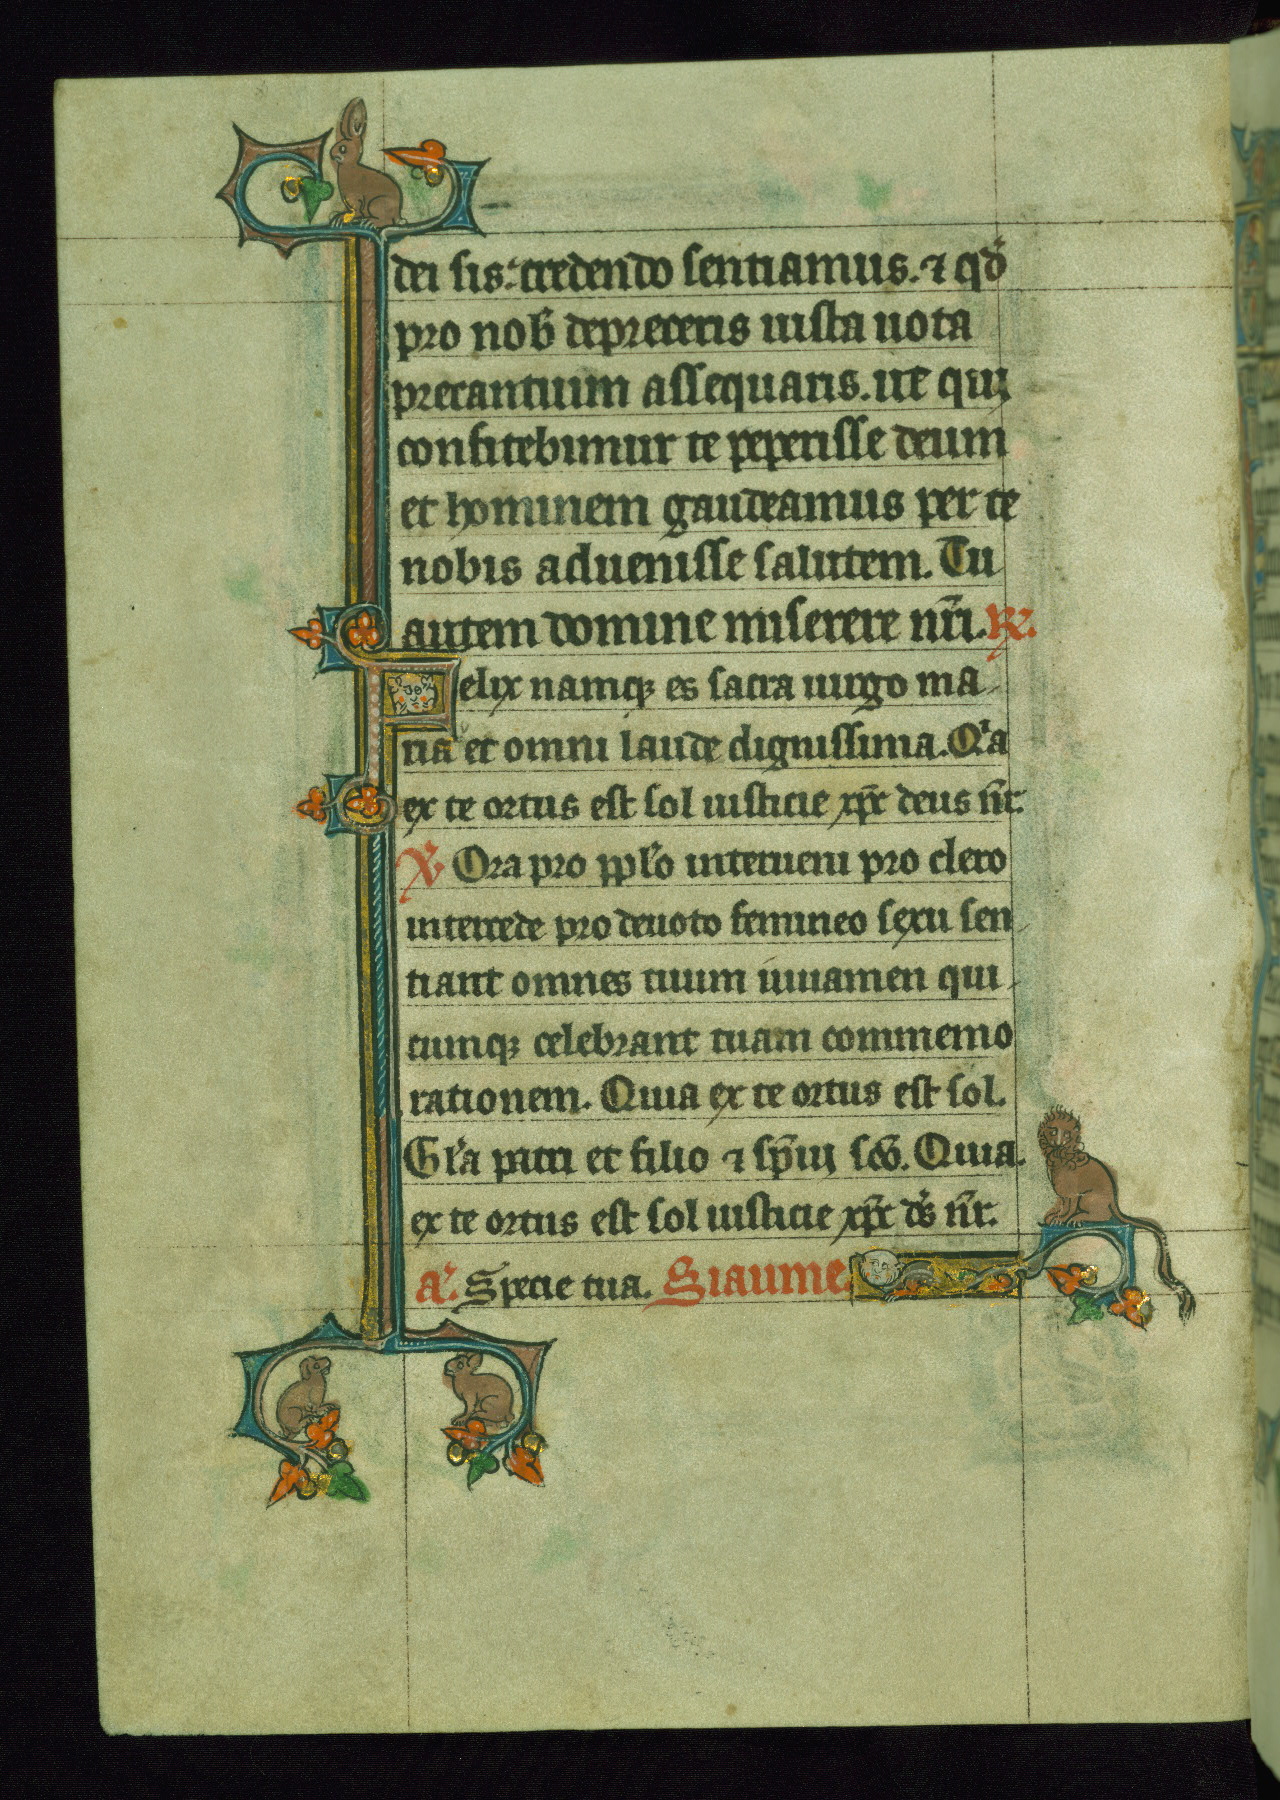 dei sis: credendo sentiamus. ⁊ qd̛
pro nob̛ depreceris iusta uota
precantium assequaris. ut qui
confitebimur te peperisse deum
et hominem gaudeamus per te
nobis aduenisse salutem. Tu
autem domine miserere nr̄i. ℟.
Felix namqꝫ es sacra uirgo ma
ria et omni laude dignissima. Qͥa
ex te ortus est sol iusticie xp̄c deus nr̄.
℣ Ora pro pplơ interueni pro clero
intercede pro deuoto femineo sexu sen
tiant omnes tuum iuuamen qui
cumqꝫ celebrant tuam commemo
rationem. Quia ex te ortus est sol.
Gl̛a patri et filio ⁊ sp̄ui sc̄o. Quia.
ex te ortus est sol iusticie xp̄c ds̄ nr̄.
a᷒. Specie tua. Siaume.